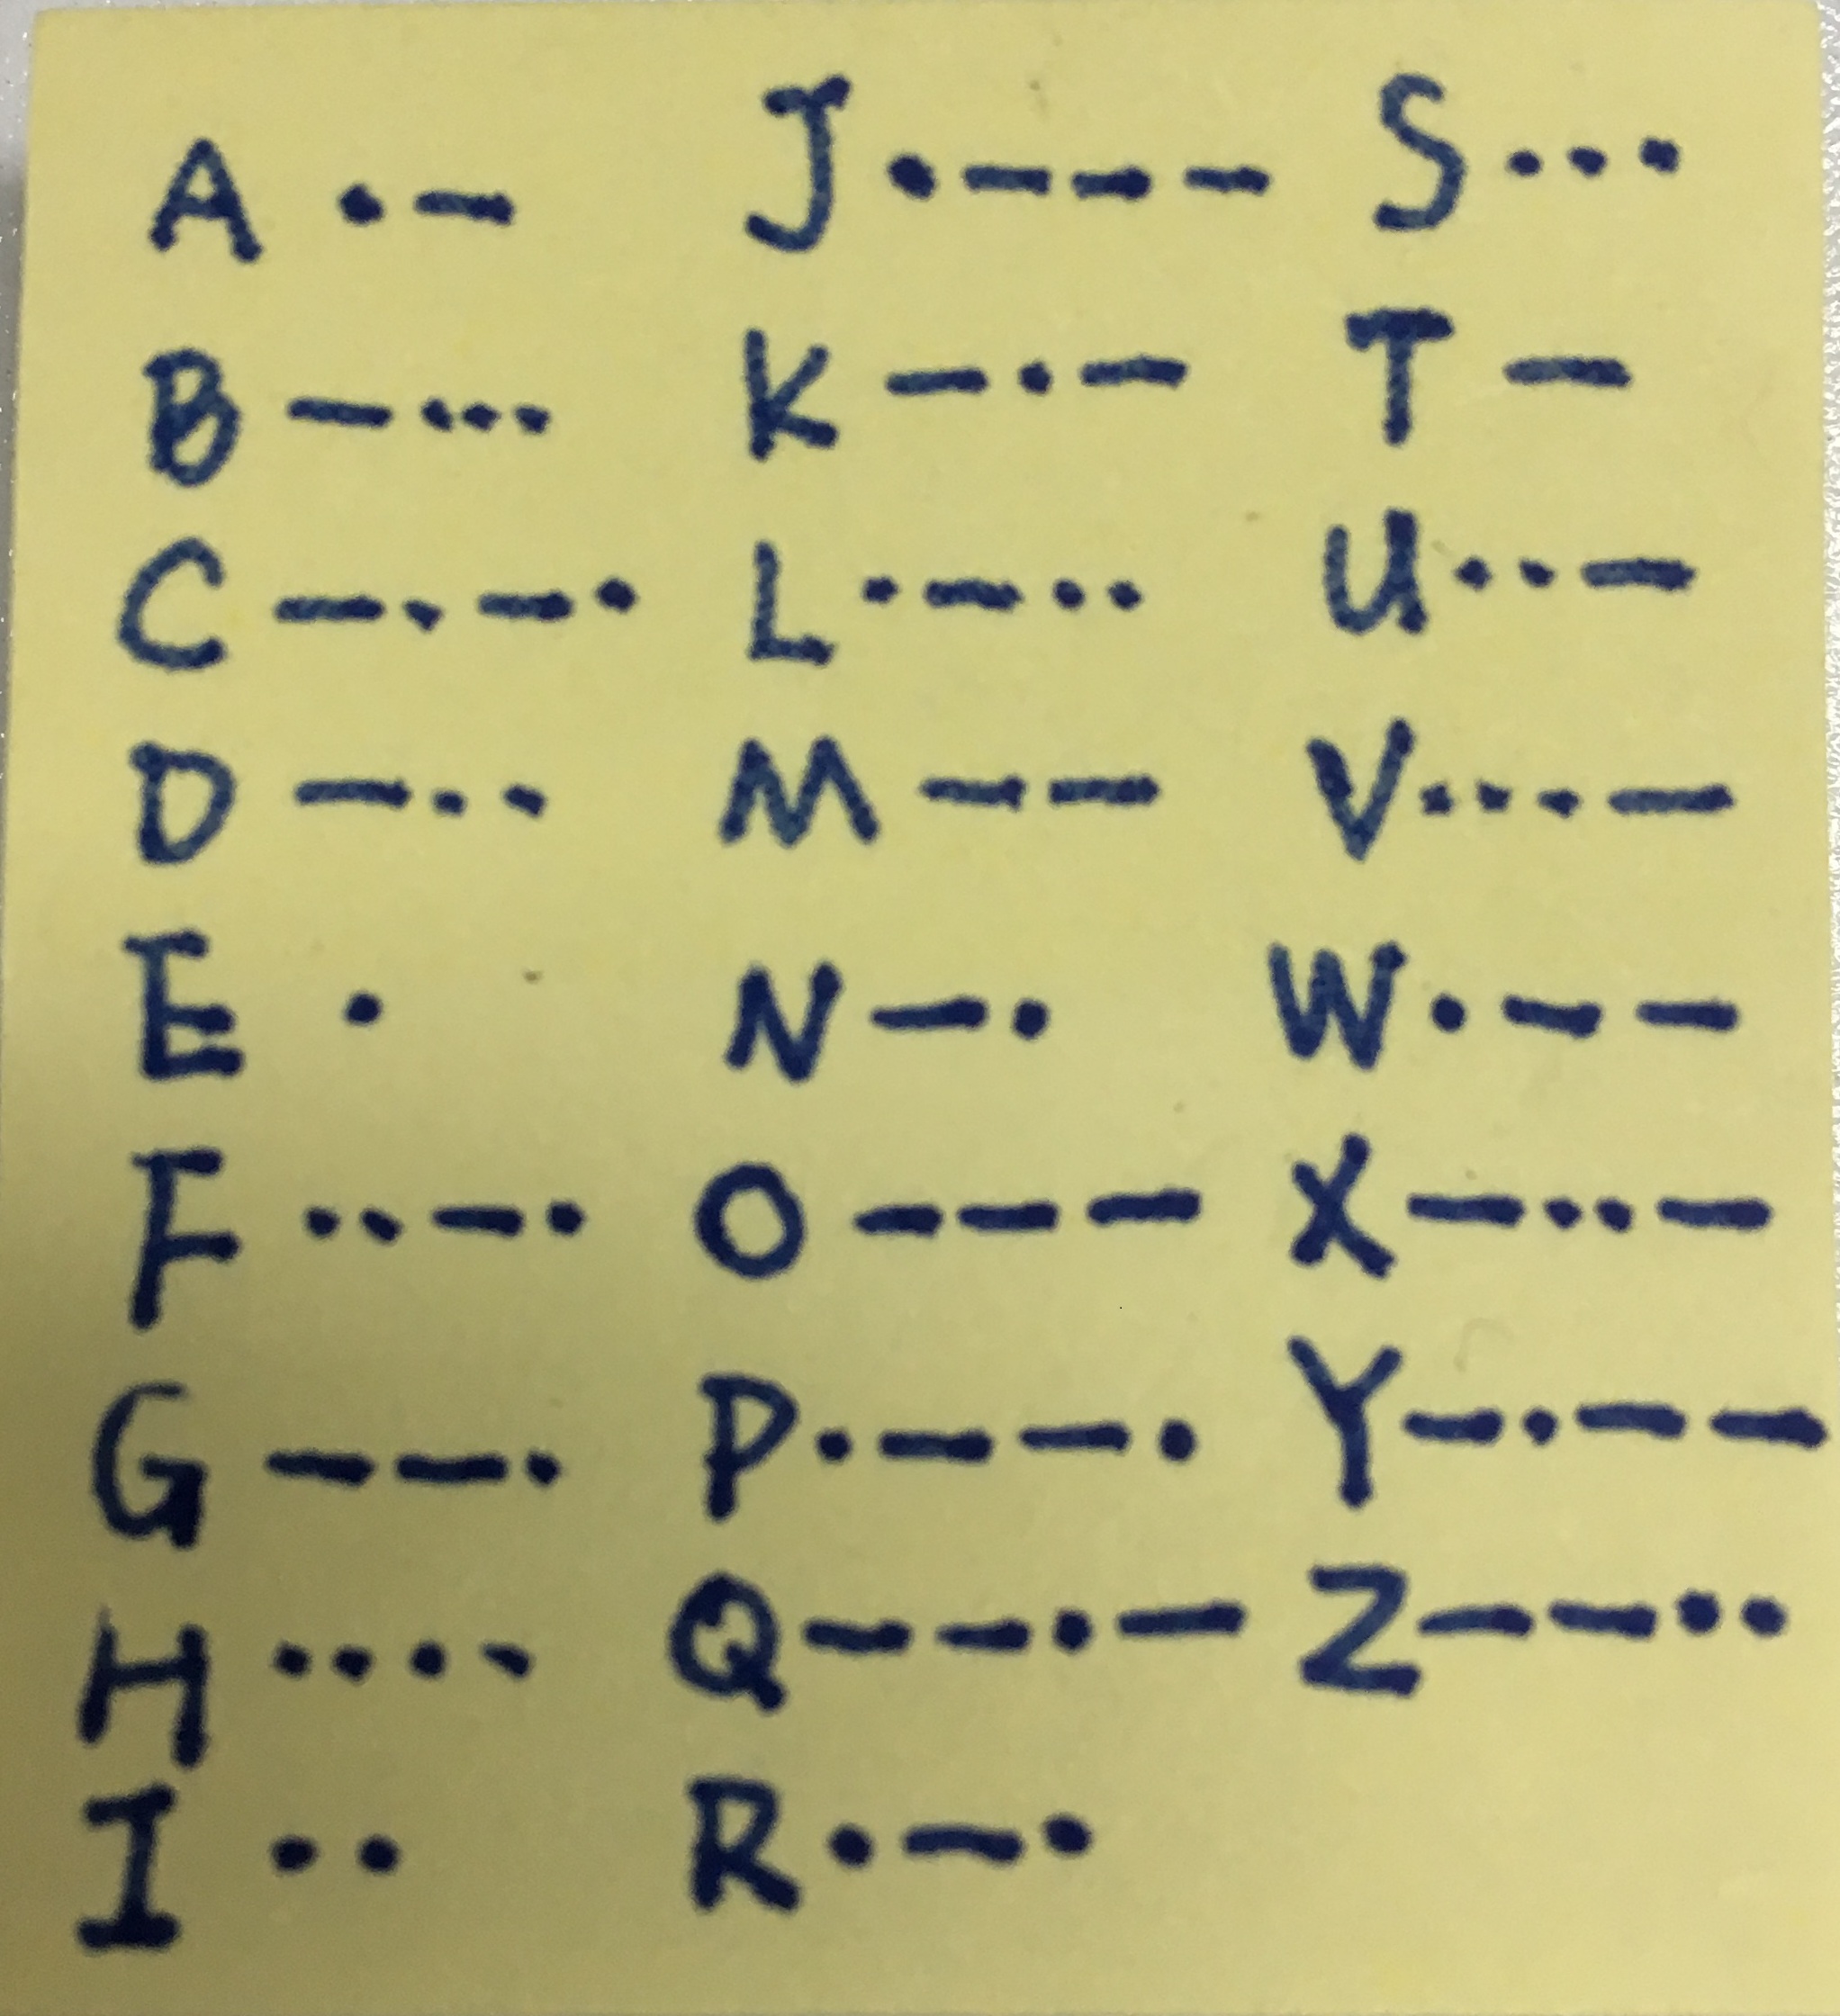 A ·—
B —···
C —·—·
D —··
E ·
F ··—·
G ——·
H ····
I ··
J ·———
K —·—
L ·—··
M ——
N —·
O ———
P ·——·
Q ——·—
R ·—·
S ···
T —
U ··—
V ···—
W ·——
X —··—
Y —·——
Z ——··